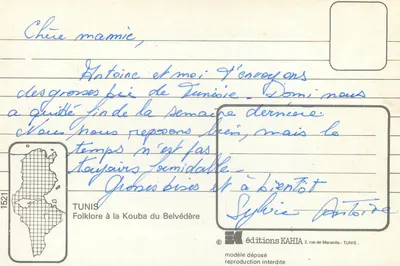 Chère mamie,
Antoine et moi t'envoyons
des grosses bie de Tunisie. Domi nous
a quitté fin de la semaine dernière.
Nous nous reposons bien, mais le
temps n'est pas
toujours formidable.
Grosses bises et à bientôt
Sylvie Antoine
1521
TUNIS
Folklore à la Kouba du Belvédère
© éditions KAHIA 2, rue de Marseille - TUNIS.
modèle déposé
reproduction interdite